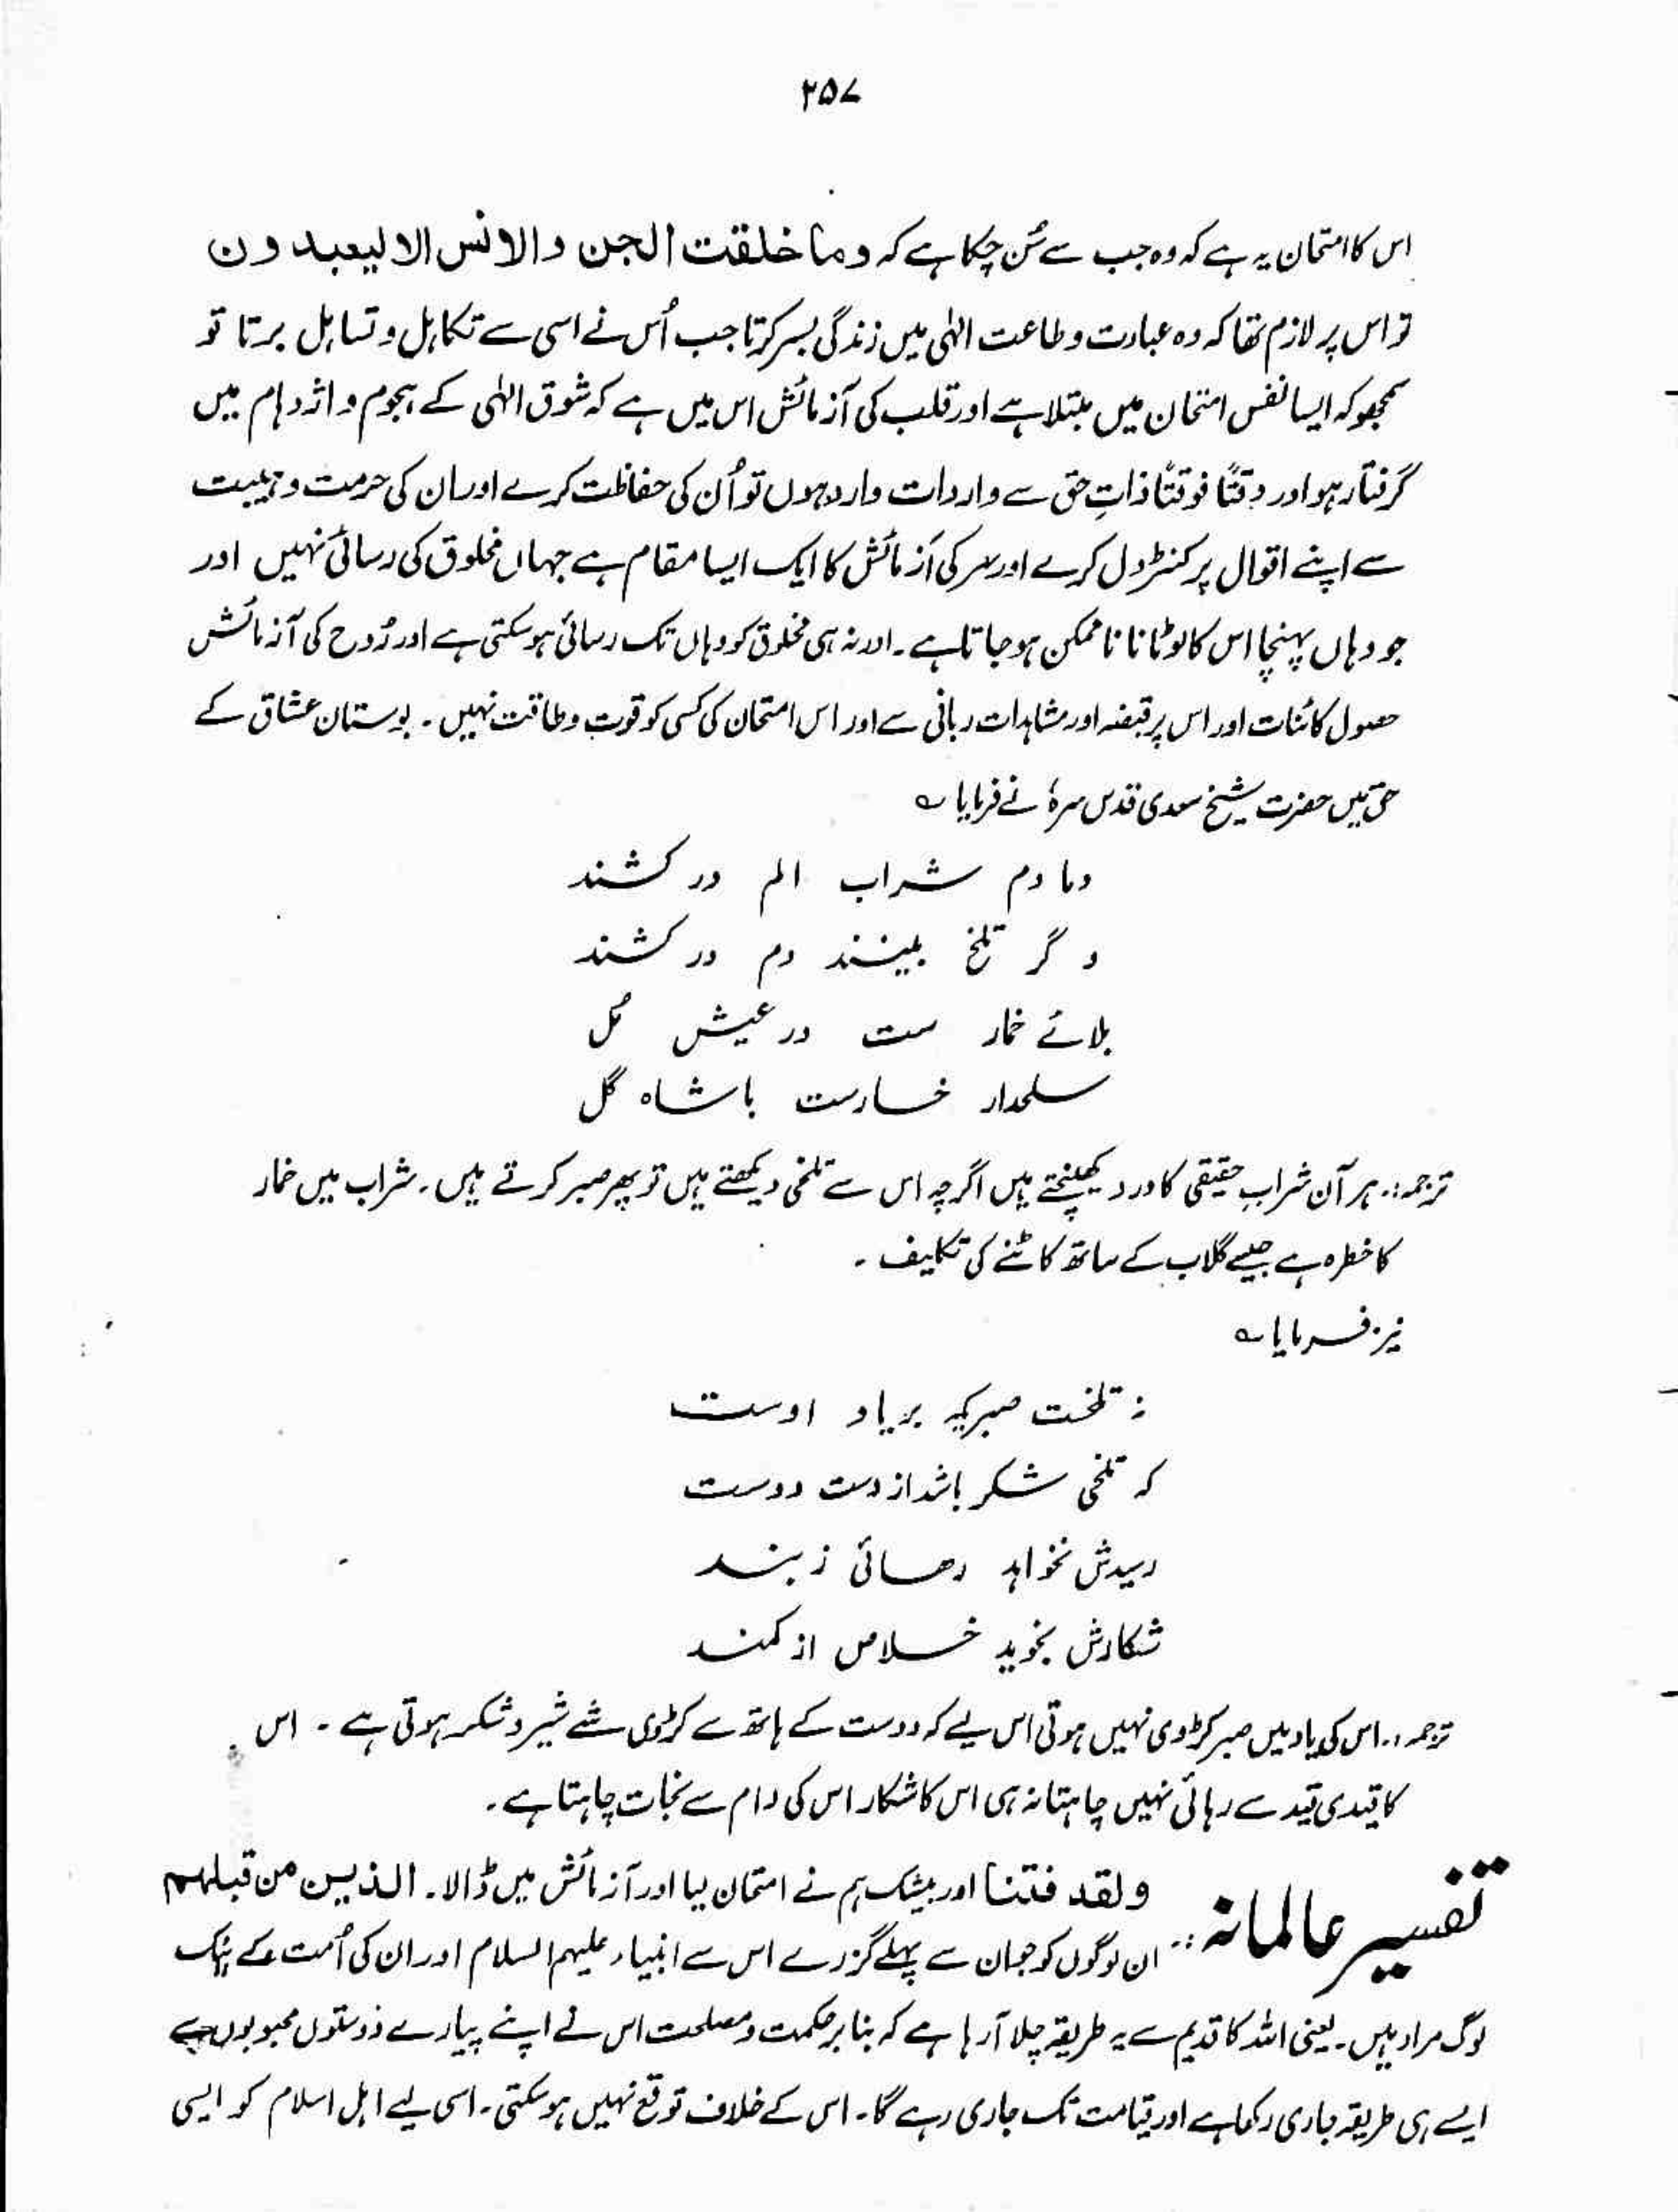 ۲۵۷
اس کا امتحان یہ ہے کہ وہ جب سے سُن چکا ہے کہ وما خلقت الجن والانس الا لیعبدون
تو اس پر لازم تھا کہ وہ عبارت و طاعت الہٰی میں زندگی بسر کرتا جب اُس نے اسی سے تکاہل و تساہل برتا تو
سمجھو کہ ایسا نفس امتحان میں مبتلا ہے اور قلب کی آزمائش اس میں ہے کہ شوق الہٰی کے ہجوم و اژدہام میں
گرفتار ہو اور وقتاً فوقتاً ذاتِ حق سے واردات وارد ہوں تو اُن کی حفاظت کرے اور ان کی حرمت و ہیبت
سے اپنے اقوال پر کنٹرول کرے اور سر کی آزمائش کا ایک ایسا مقام ہے جہاں مخلوق کی رسائی نہیں اور
جو وہاں پہنچا اس کا لوٹانا ناممکن ہو جاتا ہے۔ اور نہ ہی مخلوق کو وہاں تک رسائی ہو سکتی ہے اور رُوح کی آزمائش
حصول کائنات اور اس پر قبضہ اور مشاہدات ربانی سے اور اس امتحان کی کسی کو قوت و طاقت نہیں۔ بوستان عشاق کے
حق میں حضرت شیخ سعدی قدس سرہٗ نے فرمایا ؎
دما دم شراب الم در کشند
و گر تلخ بینند دم در کشند
بلائے خمار ست در عیش مُل
سلحدار خسارست باشاہ گل
ترجمہ:۔ ہر آن شراب حقیقی کا درد کھینچتے ہیں اگرچہ اس سے تلخی دیکھتے ہیں تو پھر صبر کرتے ہیں۔ شراب میں خمار
کا خطرہ ہے جیسے گلاب کے ساتھ کاٹنے کی تکلیف۔
نیز فرمایا ؎
نہ تلخست صبریکہ بریاد اوست
کہ تلخی شکر باشد از دست دوست
رسیدش نخواہد رھائی ز بند
شکارش نجوید خلاص از کمند
ترجمہ:۔ اس کی یاد میں صبر کڑوی نہیں ہوتی اس لیے کہ دوست کے ہاتھ سے کڑوی شے شیر و شکر ہوتی ہے۔ اس
کا قیدی قید سے رہائی نہیں چاہتا نہ ہی اس کا شکار اس کی دام سے نجات چاہتا ہے۔
تفسیر عالمانہ :۔ ولقد فتنا اور بیشک ہم نے امتحان لیا اور آزمائش میں ڈالا۔ الذین من قبلھم
ان لوگوں کو جو ان سے پہلے گزرے اس سے انبیاء علیہم السلام اور ان کی اُمت کے نیک
لوگ مراد ہیں۔ یعنی اللہ کا قدیم سے یہ طریقہ چلا آ رہا ہے کہ بنا بر حکمت و مصلحت اس نے اپنے پیارے دوستوں محبوبوں سے
ایسے ہی طریقہ جاری رکھا ہے اور قیامت تک جاری رہے گا۔ اس کے خلاف توقع نہیں ہو سکتی۔ اسی لیے اہل اسلام کو ایسی